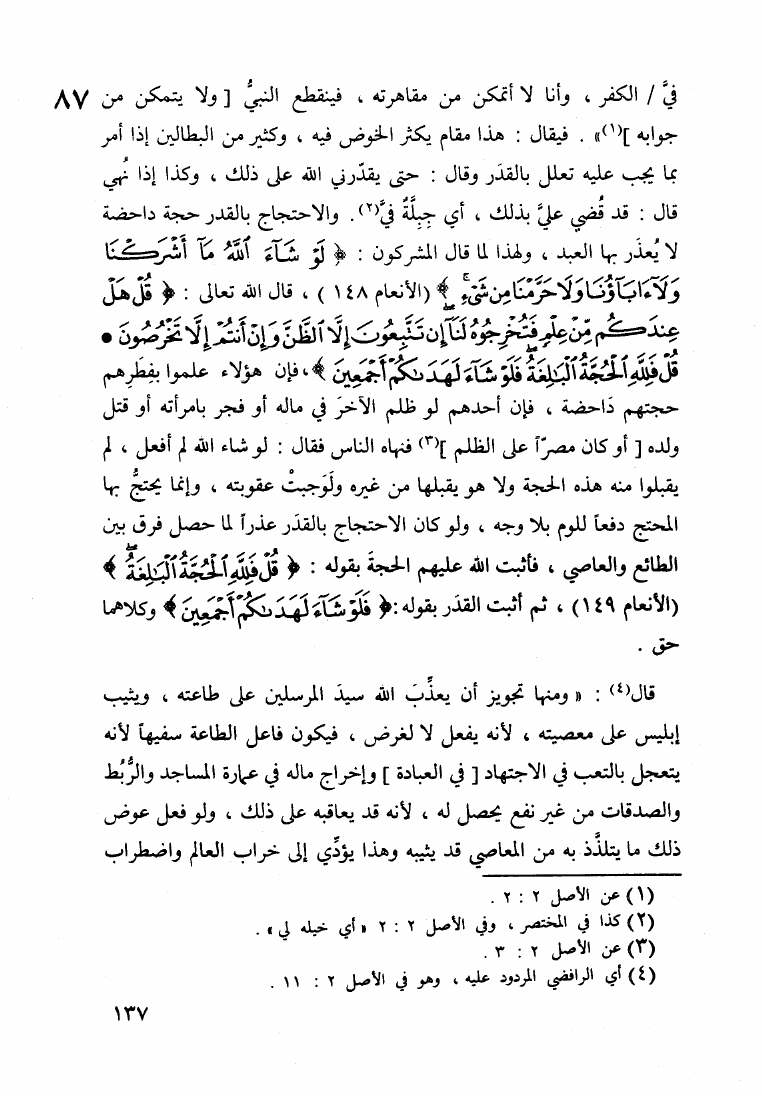 فيَّ / الكفر ، وأنا لا أتمكن من مقاهرته ، فينقطع النبيُّ [ ولا يتمكن من ٨٧
جوابه ](١)» . فيقال : هذا مقام يكثر الخوض فيه ، وكثير من البطالين إذا أمر
بما يجب عليه تعلل بالقدَر وقال : حتى يقدّرني الله على ذلك ، وكذا إذا نُهي
قال : قد قُضي عليَّ بذلك ، أي جِبِلَّةٌ فيَّ(٢). والاحتجاج بالقدر حجة داحضة
لا يُعذَر بها العبد ، ولهذا لما قال المشركون : ﴿ لَوْ شَآءَ ٱللَّهُ مَآ أَشْرَكْنَا
وَلَآ ءَابَآؤُنَا وَلَا حَرَّمْنَا مِن شَىْءٍ ﴾ (الأنعام ١٤٨ ) ، قال الله تعالى : ﴿ قُلْ هَلْ
عِندَكُم مِّنْ عِلْمٍ فَتُخْرِجُوهُ لَنَآ إِن تَتَّبِعُونَ إِلَّا ٱلظَّنَّ وَإِنْ أَنتُمْ إِلَّا تَخْرُصُونَ •
قُلْ فَلِلَّهِ ٱلْحُجَّةُ ٱلْبَـٰلِغَةُ فَلَوْ شَآءَ لَهَدَىٰكُمْ أَجْمَعِينَ ﴾، فإن هؤلاء علموا بفِطَرِهم
حجتهم دَاحضة ، فإن أحدهم لو ظلم الآخرَ في ماله أو فجر بامرأته أو قتل
ولده [ أو كان مصرّاً على الظلم ](٣) فنهاه الناس فقال : لو شاء الله لم أفعل ، لم
يقبلوا منه هذه الحجة ولا هو يقبلها من غيره ولَوَجبتْ عقوبته ، وإنما يحتجُّ بها
المحتج دفعاً للوم بلا وجه ، ولو كان الاحتجاج بالقدَر عذراً لما حصل فرق بين
الطائع والعاصي ، فأثبت الله عليهم الحجةَ بقوله : ﴿ قُلْ فَلِلَّهِ ٱلْحُجَّةُ ٱلْبَـٰلِغَةُ ﴾
(الأنعام ١٤٩) ، ثم أثبت القدَر بقوله: ﴿ فَلَوْ شَآءَ لَهَدَىٰكُمْ أَجْمَعِينَ ﴾ وكلاهما
حق .
قال(٤) : « ومنها تجويز أن يعذِّبَ الله سيدَ المرسلين على طاعته ، ويثيب
إبليس على معصيته ، لأنه يفعل لا لغرض ، فيكون فاعل الطاعة سفيهاً لأنه
يتعجل بالتعب في الاجتهاد [ في العبادة ] وإخراج ماله في عمارة المساجد والرُّبُط
والصدقات من غير نفع يحصل له ، لأنه قد يعاقبه على ذلك ، ولو فعل عوض
ذلك ما يتلذَّذ به من المعاصي قد يثيبه وهذا يؤدِّي إلى خراب العالم واضطراب
(١) عن الأصل ٢ : ٢ .
(٢) كذا في المختصر ، وفي الأصل ٢ : ٢ «أي خيله لي» .
(٣) عن الأصل ٢ : ٣ .
(٤) أي الرافضي المردود عليه ، وهو في الأصل ٢ : ١١ .
١٣٧